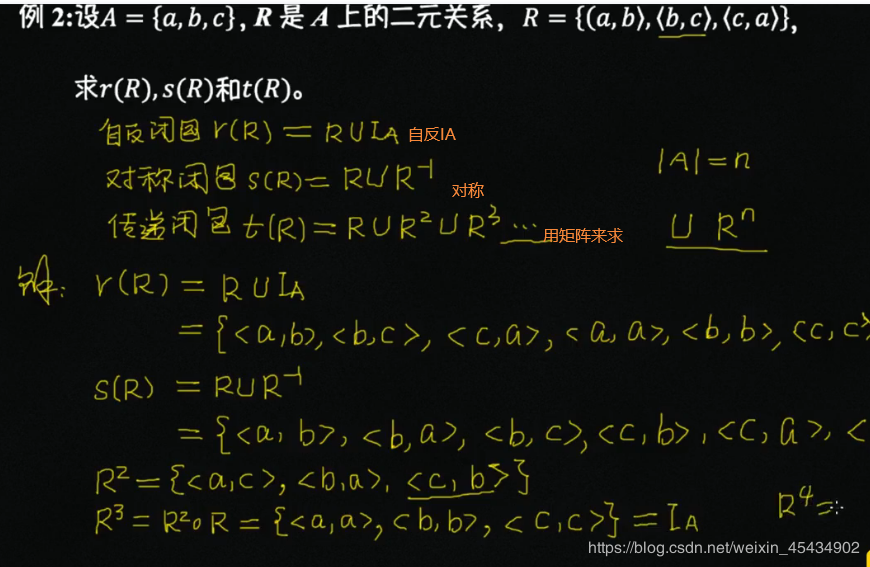 例 2:设A = {a, b, c}, R 是 A 上的二元关系, R = {(a, b⟩, ⟨b, c⟩, ⟨c, a⟩},
求r(R), s(R)和t(R)。
自反闭包 r(R) = R∪IA 自反IA
对称闭包 s(R) = R∪R⁻¹ 对称
|A| = n
传递闭包 t(R) = R∪R²∪R³ … 用矩阵来求
∪ Rⁿ
解: r(R) = R∪IA
= {<a,b>, <b,c>, <c,a>, <a,a>, <b,b>, <c,c>
s(R) = R∪R⁻¹
= {<a,b>, <b,a>, <b,c>, <c,b>, <c,a>, <
R² = {<a,c>, <b,a>, <c,b>}
R³ = R²∘R = {<a,a>, <b,b>, <c,c>} = IA
R⁴ =
https://blog.csdn.net/weixin_45434902